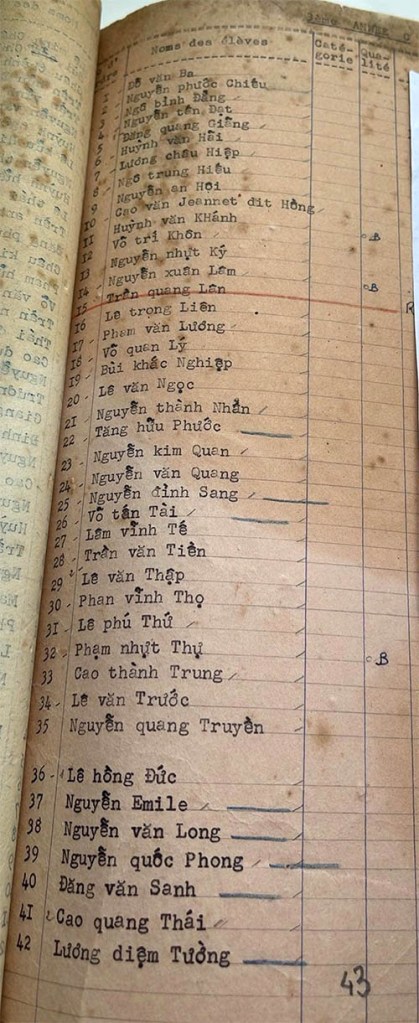 3ème ANNEE C
N° Noms des élèves Caté-gorie Qua-lité
1 Đỗ văn Ba
2 Nguyễn phước Chiêu
3 Ngô bỉnh Đằng
4 Nguyễn tấn Đạt
5 Đặng quang Giêng
6 Huỳnh văn Hải
7 Lương châu Hiệp
8 Ngô trung Hiếu
9 Nguyễn an Hội
10 Cao văn Jeannet dit Hồng
11 Huỳnh văn KHánh
12 Võ tri Khôn B
13 Nguyễn nhựt Ký
14 Nguyễn xuân Lãm B
15 Trần quang Lân
16 Lê trọng Liên
17 Phạm văn Lương
18 Võ quan Lý
19 Bùi khắc Nghiệp
20 Lê văn Ngọc
21 Nguyễn thành Nhẫn
22 Tăng hữu Phước
23 Nguyễn kim Quan
24 Nguyễn văn Quang
25 Nguyễn đình Sang
26 Võ tấn Tài
27 Lâm vĩnh Tế
28 Trần văn Tiên
29 Lê văn Thập
30 Phan vĩnh Thọ
31 Lê phú Thứ
32 Phạm nhựt Thự B
33 Cao thành Trung
34 Lê văn Trước
35 Nguyễn quang Truyền
36 Lê hồng Đức
37 Nguyễn Emile
38 Nguyễn văn Long
39 Nguyễn quốc Phong
40 Đặng văn Sanh
41 Cao quang Thái
42 Lương diệm Tường
43